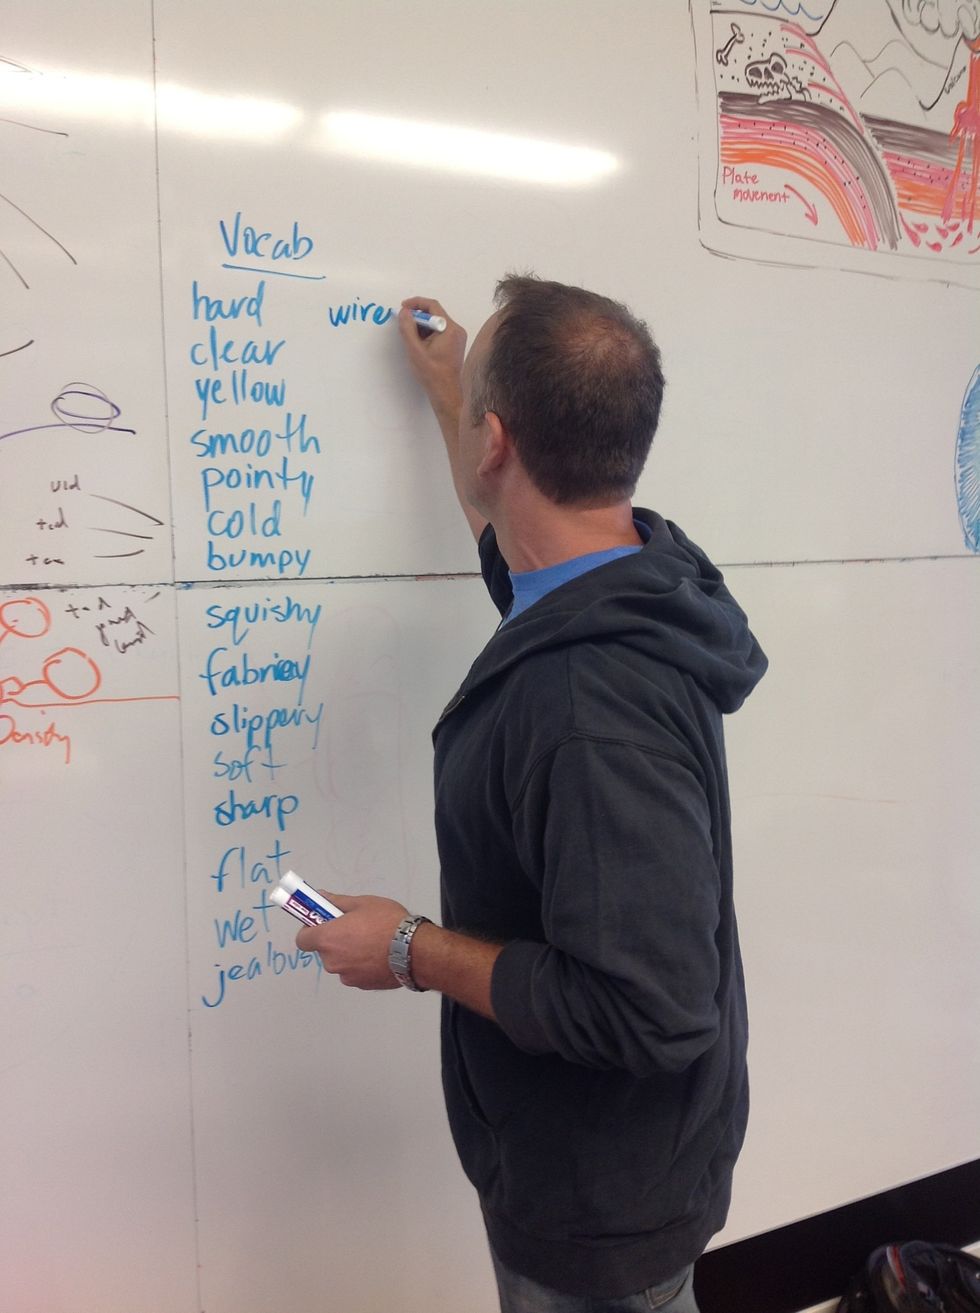 Vocab
hard
clear
yellow
smooth
pointy
cold
bumpy
squishy
slippery
soft
sharp
flat
wet
jealousy
wire
Plate
movement
Density